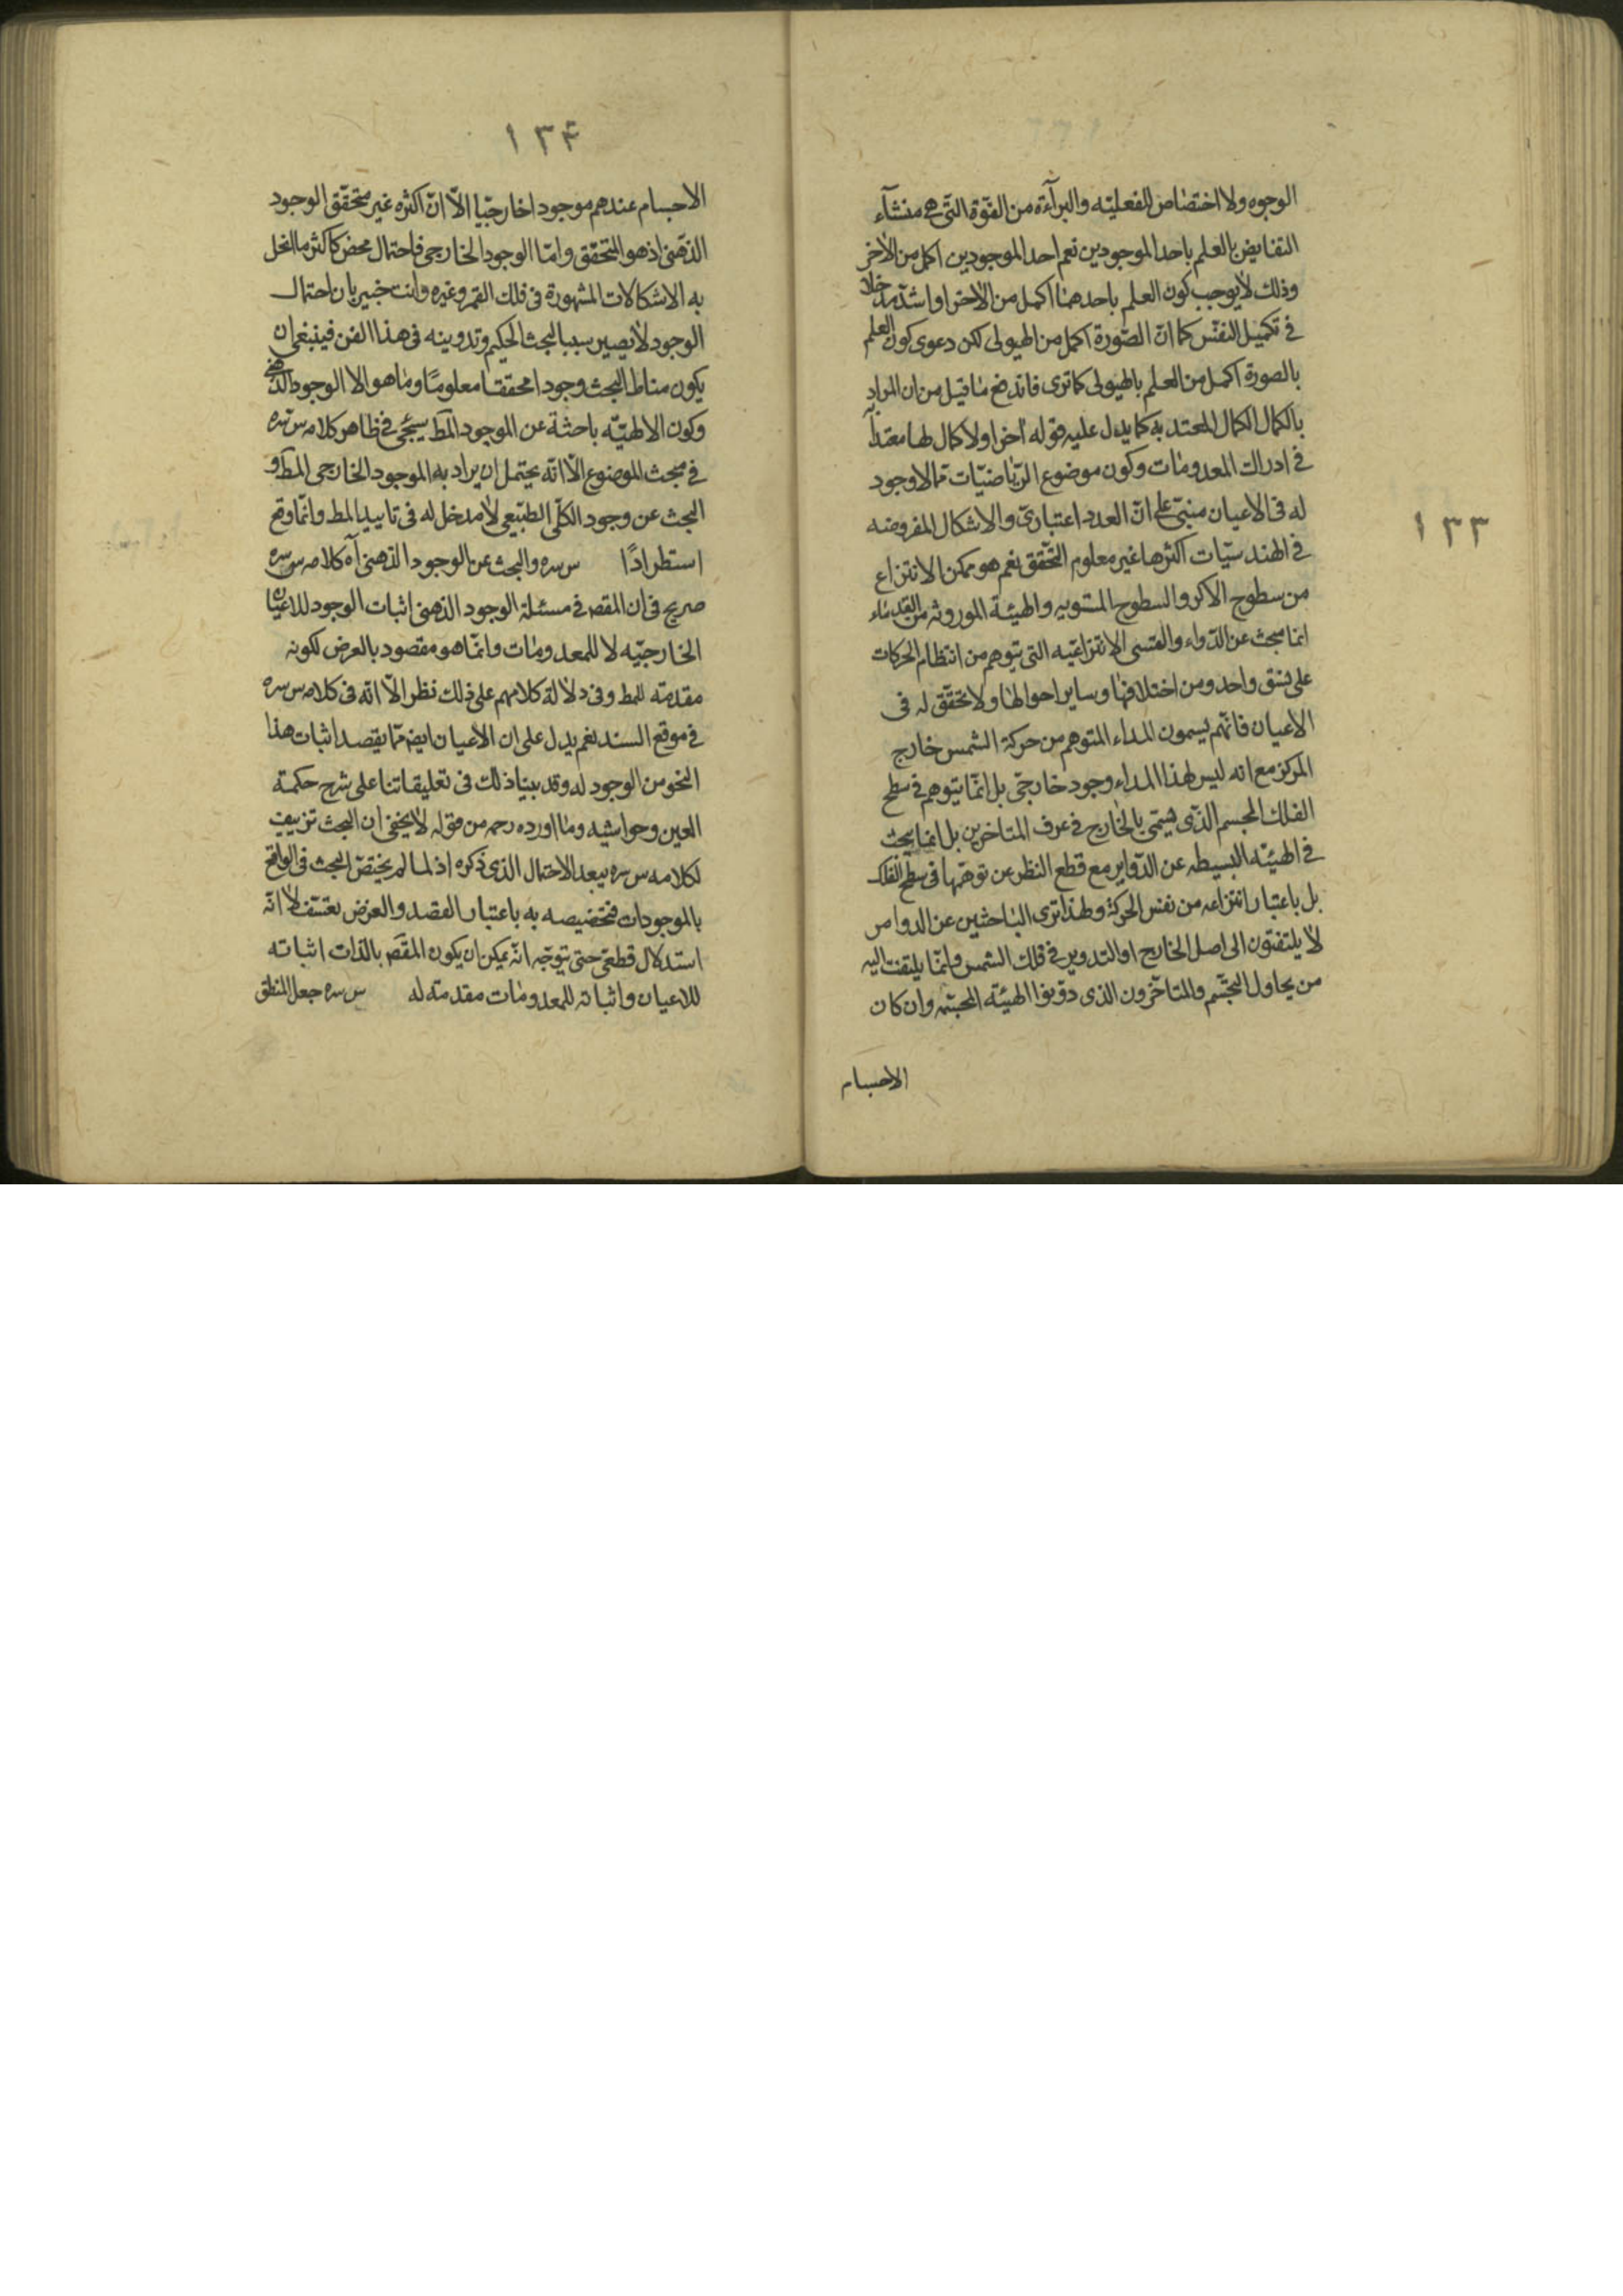 ١٣٣
الوجوه ولا اختصاص للفعليّه والبرآءة من القوّة التى هى منشآء
النقايص بالعلم باحد الموجودين نعم احد الموجودين اكمل من الاخر
وذلك لا يوجب كون العلم باحدهما اكمل من الاخر او اشدّ مدخلا
فى تكميل النفس كما انّ الصّورة اكمل من الهيولى لكن دعوى كون العلم
بالصورة اكمل من العلم بالهيولى كما ترى فاندفع ما قيل من ان المراد
بالكمال الكمال المعتد به كما يدل عليه قوله اخرا ولا كمال لها معتدا به
فى ادراك المعدومات وكون موضوع الرّياضيّات ممّا لا وجود
له فى الاعيان مبنىّ على انّ العدد اعتبارىّ والاشكال المفروضه
فى الهندسيّات اكثرها غير معلوم التحّقق نعم هو ممكن الانتزاع
من سطوح الاكر والسطوح المستويه والهيئة الموروثه من القدماء
انما يبحث عن الدّواء والقسى الانتزاعيّه التى يتوهم من انتظام الحركات
على نسق واحد ومن اختلافها وساير احوالها ولا تحقّق له فى
الاعيان فانّهم يسمون المداء المتوهم من حركة الشمس خارج
المركز مع انه ليس لهذا المداء وجود خارجّى بل انمّا يتوهم فى سطح
الفلك المجسم الذّى يسمّى بالخارج فى عرف المتاخرين بل انما يبحث
فى الهيئة البسيطه عن الدّواير مع قطع النظر عن توهّمها فى سطح الفلك
بل باعتبار انتزاعه من نفس الحركة ولهذا ترى الباحثين عن الدوامر
لا يلتفتون الى اصل الخارج او التدوير فى فلك الشمس وانمّا يلتفت اليه
من يحاول التجسّم والمتاخّرون الذى دوّنوا الهيئة المجسّمه وان كان
الاجسام
١٣۴
الاجسام عندهم موجودا خارجيّا الاّ انّ اكثره غير متحقّق الوجود
الذهنى اذ هو المتحقّق وامّا الوجود الخارجى فاحتمال محض كاكثر ما انحل
به الاشكالات المشهورة فى فلك القمر وغيره وانت خبير بان احتمال
الوجود لا يصير سببا لبحث الحكيم وتدوينه فى هذا الفن فينبغى ان
يكون مناط البحث وجودا محققا معلومًا وما هو الا الوجود الذّهنى
وكون الالهيّه باحثة عن الموجود المط سيجئ فى ظاهر كلامه س سره
فى مبحث الموضوع الاّ انّه يحتمل ان يراد به الموجود الخارجى المط و
البحث عن وجود الكلّى الطبّيعى لا مدخل له فى تاييد المط وانمّا وقع
استطرادًا س سره والبحث عن الوجود الذهنى آه كلامه س سره
صريح فى ان المقصه فى مسئلة الوجود الذهنى اثبات الوجود للاعيان
الخارجيّه لا للمعدومات وانمّا هو مقصود بالعرض لكونه
مقدمّه للمط وفى دلالة كلامهم على ذلك نظر الاّ انّه فى كلامه س سره
فى موقع السند نعم يدل على ان الأعيان ايضه ممّا يقصد اثبات هذا
النحو من الوجود له وقد بينا ذلك فى تعليقاتنا على شرح حكمة
العين وحواشيه وما اورده رحمه من قوله لا يخفى ان البحث تزييف
لكلامه س سره يبعد الاحتمال الذى ذكره اذ لما لم يختصّ البحث فى الواقع
بالموجودات فتخصيصه به باعتبار القصد والعرض تعسّف لا انّه
استدلال قطعىّ حتى يتوجّه انّه يمكن ان يكون المقصه بالذات اثباته
للاعيان واثباته للمعدومات مقدمته له س سره جعل المنطق